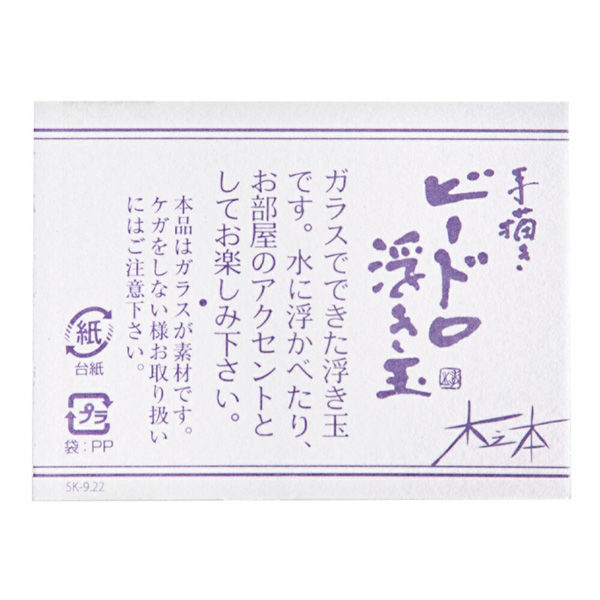 手描き
ビードロ
浮き玉
ガラスでできた浮き玉
です。水に浮かべたり、
お部屋のアクセントと
してお楽しみ下さい。
本品はガラスが素材です。
ケガをしない様お取り扱い
にはご注意下さい。
紙
台紙
プラ
袋：PP
5K-9.22